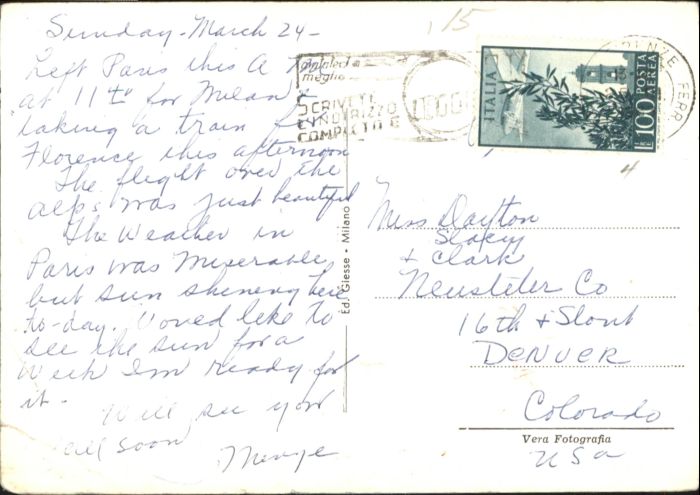 Sunday - March 24 -
Left Paris this A M
at 11 for Milan
taking a train
Florence this afternoon
The flight over the
alps was just beautiful
The Weather in
Paris was Miserable
but sun shining here
to-day. Would like to
see the sun for a
Week I'm ready for
it -
Will see you
all soon
15
SCRIVETE
INDIRIZZO
COMPLETO E
ITALIA
POSTA
AEREA
L. 100
FIRENZE FERR
4
Ed. Giesse - Milano
Miss Dayton
Stacy
+ Clark
Neusteter Co
16th & Stout
DENVER
Colorado
Vera Fotografia
USA